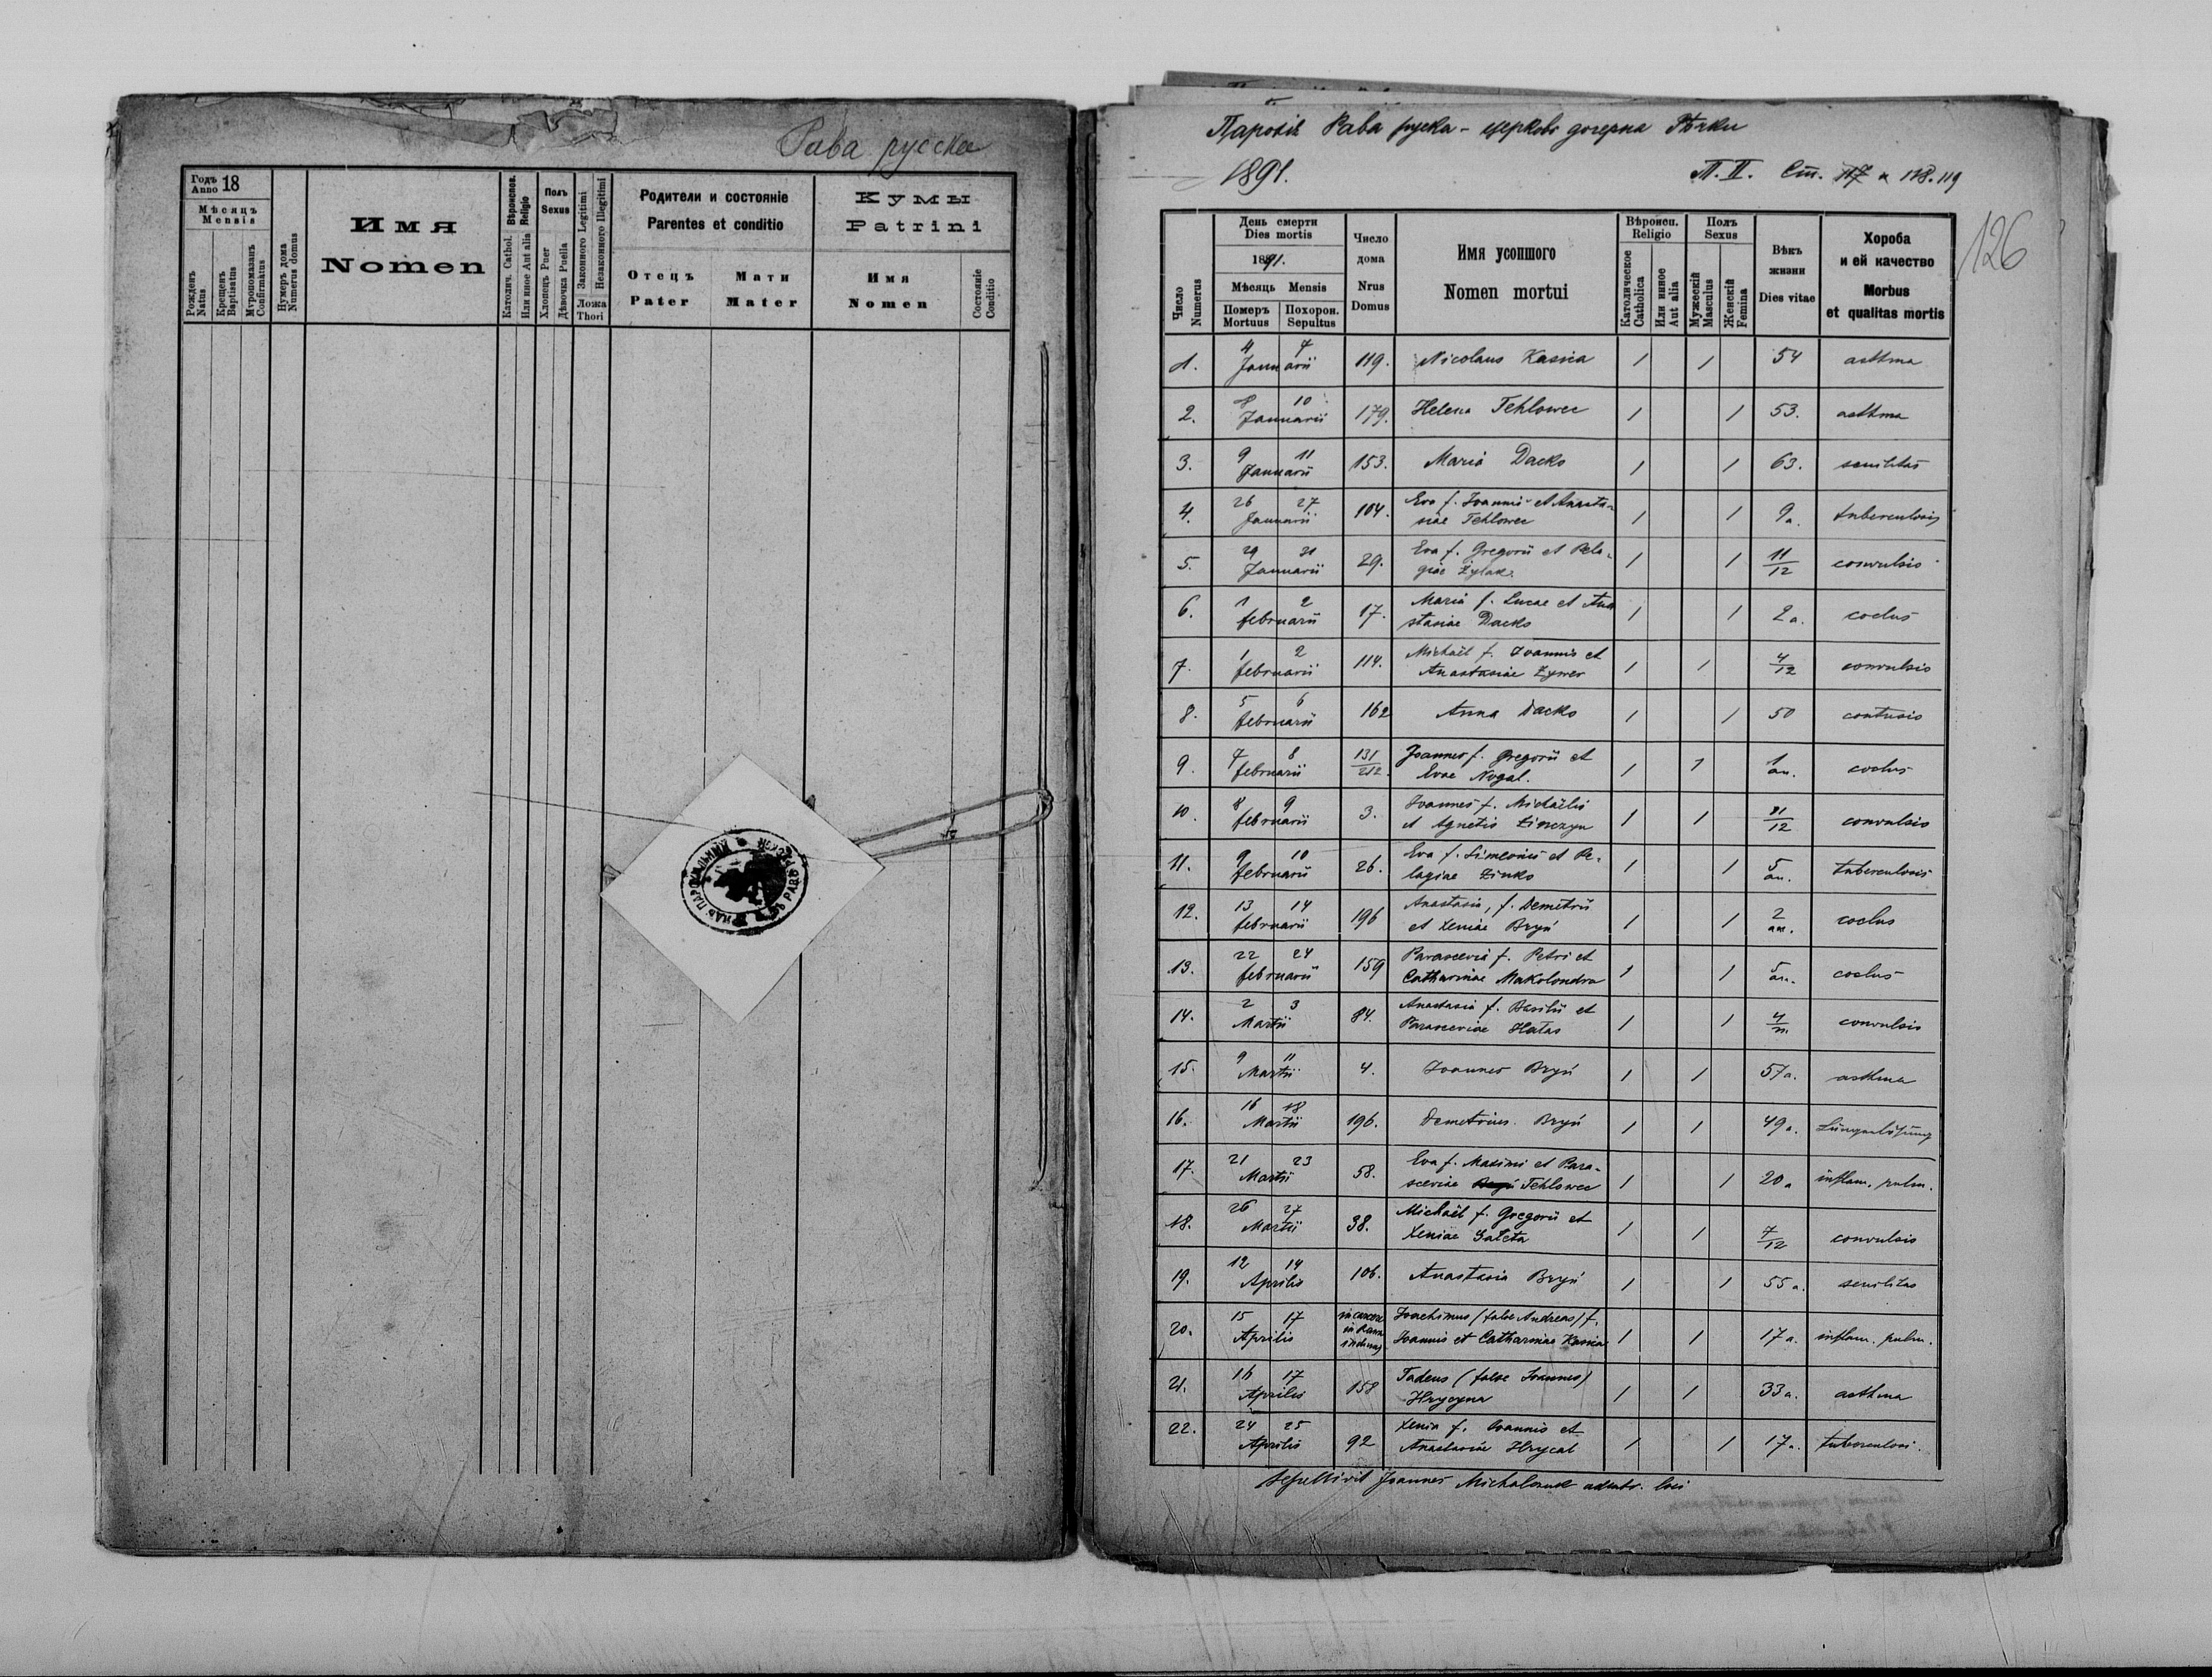 Рава русска
Годъ Anno 18
Мѣсяцъ Mensis
Рожденъ Natus
Крещенъ Baptisatus
Мѵропомазанъ Confirmatus
Нумеръ дома Numerus domus
Имя
Nomen
Вѣроиспов. Religio
Католич. Cathol.
Или иное Aut alia
Полъ Sexus
Хлопецъ Puer
Дѣвочка Puella
Законного Legitimi
Незаконного Illegitimi
Ложа Thori
Родители и состояніе
Parentes et conditio
Отецъ Pater
Мати Mater
Кумы
Patrini
Имя Nomen
Состояніе Conditio
Парохія Рава руска - церковь дочерна Рѣчки
1891.
Т. II. Ст. 117 и 118. 119
126
Число Numerus
День смерти
Dies mortis
1891.
Мѣсяць Mensis
Померъ Mortuus
Похорон. Sepultus
Число дома
Nrus Domus
Имя усопшого
Nomen mortui
Вѣроисп. Religio
Католическое Catholica
Или инное Aut alia
Полъ Sexus
Мужескій Masculus
Женскій Femina
Вѣкъ жизни
Dies vitae
Хороба и ей качество
Morbus et qualitas mortis
1. 4 7 Januarii 119. Nicolaus Kasica 1 1 54 asthma
2. 8 10 Januarii 179. Helena Tehlowec 1 1 53. asthma
3. 9 11 Januarii 153. Maria Dacko 1 1 63. senilitas
4. 26 27 Januarii 104. Eva f. Joannis et Anasta-
siae Tehlowec 1 1 9 a. tuberculosis
5. 29 31 Januarii 29. Eva f. Gregorii et Pela-
giae Żyłak 1 1 11/12 convulsio
6. 1 2 februarii 17. Maria f. Lucae et Ana
stasiae Dacko 1 1 2 a. coclus
7. 1 2 februarii 114. Michaël f. Joannis et
Anastasiae Żywer 1 1 4/12 convulsio
8. 5 6 februarii 162 Anna Dacko 1 1 50 contusio
9. 7 8 februarii 131/212. Joannes f. Gregorii et
Evae Nogal. 1 1 1 an. coclus
10. 8 9 februarii 3. Joannes f. Michaëlis
et Agnetis 1 1 /12 convulsio
11. 9 10 februarii 26. Eva f. Simeonis et Pe-
lagiae Zinko 1 1 5 an. tuberculosis
12. 13 14 februarii 196 Anastasia, f. Demetrii
et Xeniae Bryń 1 1 2 an. coclus
13. 22 24 februarii 159 Parascevia f. Petri et
Catharinae Makolondra 1 1 5 an. coclus
14. 2 3 Martii 84. Anastasia f. Basilii et
Parasceviae Hałas 1 1 4/m. convulsio
15. 9 11 Martii 4. Joannes Bryń 1 1 57 a. asthma
16. 16 18 Martii 196. Demetrius Bryń 1 1 49 a.
17. 21 23 Martii 58. Eva f. Maximi et Para-
sceviae Tehlowec 1 1 20 a inflam. pulm.
18. 26 27 Martii 38. Michaël f. Gregorii et
Xeniae Gałeta 1 1 7/12 convulsio
19. 12 14 Aprilis 106. Anastasia Bryń 1 1 55 a. senilitas
20. 15 17 Aprilis in carcere in Rawa Joachimus (false Andreas) f.
Joannis et Catharinae Kasica 1 1 17 a. inflam. pulm.
21. 16 17 Aprilis 158 Tadeus (false Joannes)
Hrycyna 1 1 33 a. asthma
22. 24 25 Aprilis 92 Xenia f. Joannis et
Anastasiae Hrycal 1 1 17 a. tuberculosi.
Sepelivit Joannes admtr. loci